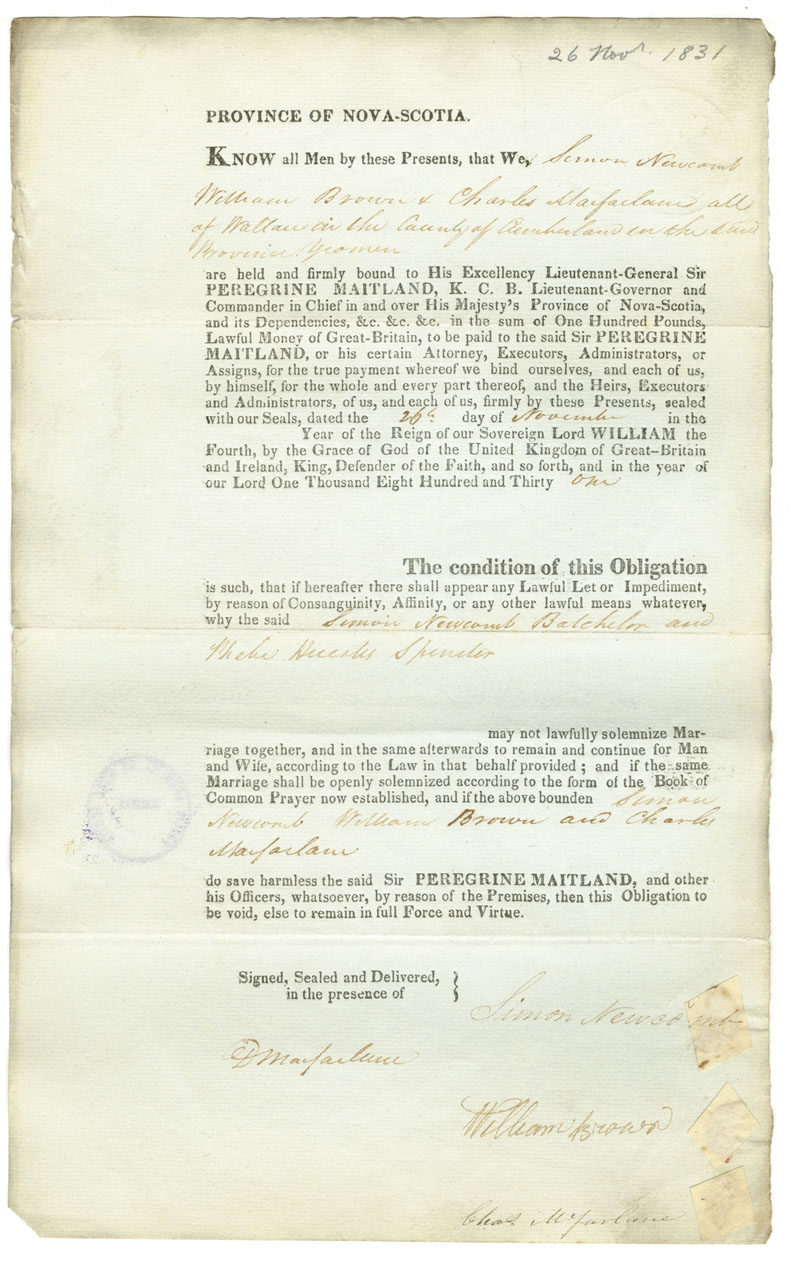 26 Novr. 1831
PROVINCE OF NOVA-SCOTIA.
KNOW all Men by these Presents, that We, Simon Newcomb
William Brown & Charles Macfarlane all
of Wallace in the County of Cumberland in the said
Province Yeomen
are held and firmly bound to His Excellency Lieutenant-General Sir
PEREGRINE MAITLAND, K. C. B. Lieutenant-Governor and
Commander in Chief in and over His Majesty's Province of Nova-Scotia,
and its Dependencies, &c. &c. &c. in the sum of One Hundred Pounds,
Lawful Money of Great-Britain, to be paid to the said Sir PEREGRINE
MAITLAND, or his certain Attorney, Executors, Administrators, or
Assigns, for the true payment whereof we bind ourselves, and each of us,
by himself, for the whole and every part thereof, and the Heirs, Executors
and Administrators, of us, and each of us, firmly by these Presents, sealed
with our Seals, dated the 26th day of November in the
Year of the Reign of our Sovereign Lord WILLIAM the
Fourth, by the Grace of God of the United Kingdom of Great-Britain
and Ireland, King, Defender of the Faith, and so forth, and in the year of
our Lord One Thousand Eight Hundred and Thirty one
The condition of this Obligation
is such, that if hereafter there shall appear any Lawful Let or Impediment,
by reason of Consanguinity, Affinity, or any other lawful means whatever,
why the said Simon Newcomb Batchelor and
Phebe Spinster
may not lawfully solemnize Mar-
riage together, and in the same afterwards to remain and continue for Man
and Wife, according to the Law in that behalf provided; and if the same
Marriage shall be openly solemnized according to the form of the Book of
Common Prayer now established, and if the above bounden Simon
Newcomb William Brown and Charles
Macfarlane
do save harmless the said Sir PEREGRINE MAITLAND, and other
his Officers, whatsoever, by reason of the Premises, then this Obligation to
be void, else to remain in full Force and Virtue.
Signed, Sealed and Delivered,
in the presence of
Simon Newcomb
D Macfarlane
William Brown
Chas McFarlane